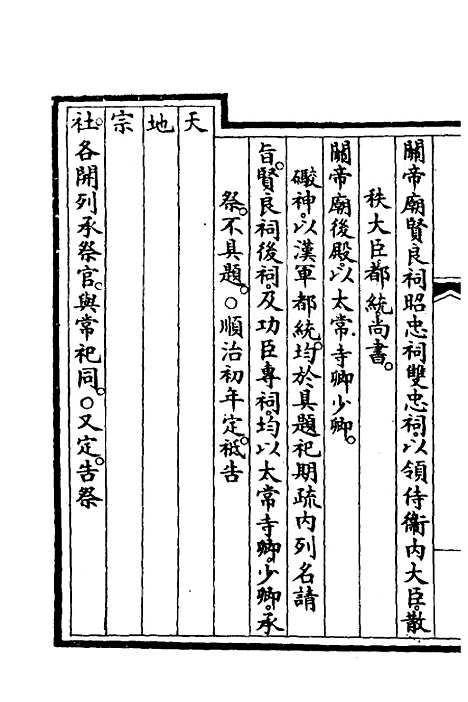 關帝廟賢良祠昭忠祠雙忠祠以領侍衞內大臣散
秩大臣都統尚書
關帝廟後殿以太常寺卿少卿
礮神以漢軍都統均於具題祀期疏內列名請
旨賢良祠後祠及功臣專祠均以太常寺卿少卿承
祭不具題○順治初年定祗告
天
地
宗
社各開列承祭官與常祀同○又定告祭